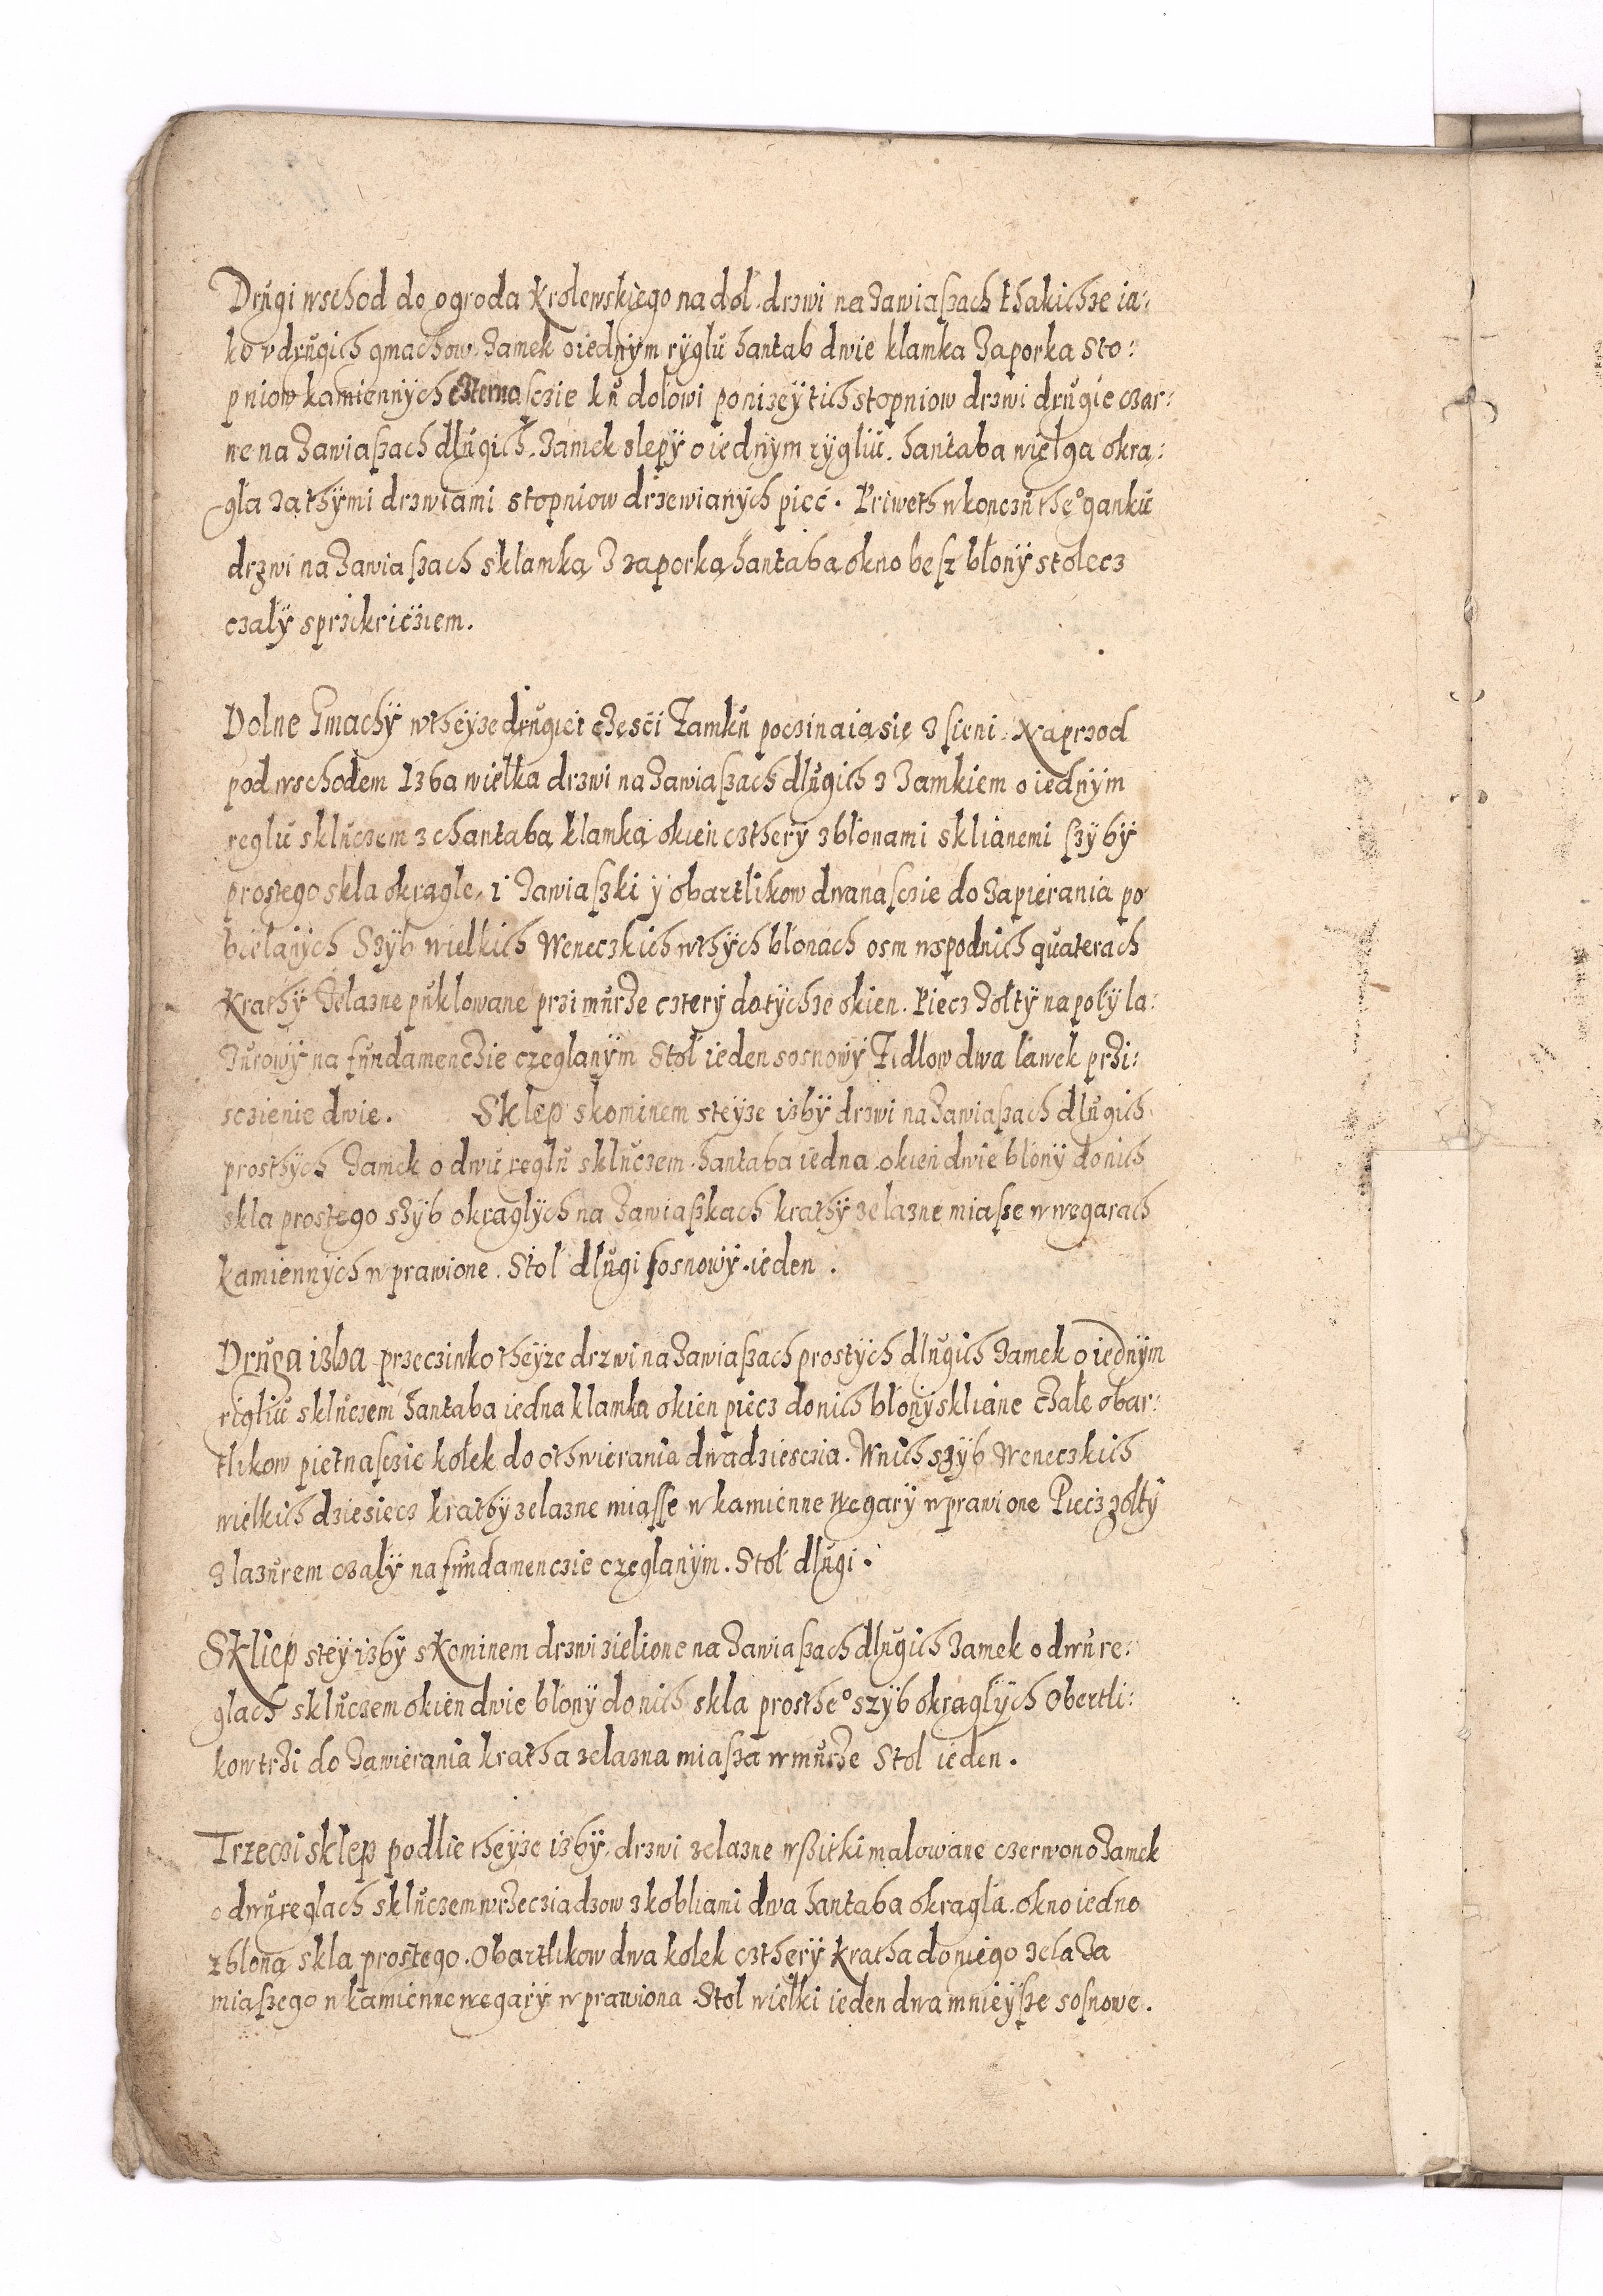 Drugi wschod do ogroda Krolewskiego na dol. drzwi na Zawiaszach thakichze ia:
ko v drugich gmachow. Zamek o iednym ryglu hantab dwie klamka Zaporka Sto:
pniow kamiennÿch czternasczie ku dołowi ponizeÿ tich stopniow drzwi drugie czar:
ne na Zawiaszach długich. Zamek slepÿ o iednym rygliu. hantaba wielga okra:
gla za thÿmi drzwiami stopniow drzewianÿch pięć. Priweth w konczu the° ganku
drzwi na Zawiaszach s klamką Z zaporką hantabą okno besz błonÿ stolecz
czalÿ s przikricziem.
Dolne Gmachÿ w theÿze drugiei części Zamku poczinaią się z sieni. Naprzod
pod wschodem Izba wielka drzwi na Zawiaszach długich z Zamkiem o iednÿm
reglu s kluczem z chantabą klamką okien czterÿ z błonami sklianemi szÿbÿ
prostego skla okragle, i Zawiaszki ÿ obartlikow dwanasczie do Zapierania po
bielanÿch Szÿb wielkich Weneczkich w thÿch błonach osm w spodnich quaterach
Krathÿ Zelazne puklowane przi murze czterÿ do tÿchze okien. Piecz Zołtÿ na połÿ la:
Zurowÿ na fundamenczie czeglanÿm Stoł ieden sosnowÿ Zidlow dwa ławek przi:
sczienie dwie. Sklep s kominem s teÿze izbÿ drzwi na Zawiaszach długich
prosthÿch Zamek o dwu reglu s kluczem. hantaba iedna. okien dwie błonÿ do nich
skla prostego szÿb okraglÿch na Zawiaszkach krathÿ zelazne miasze w wegarach
kamiennÿch w prawione. Stoł długi sosnowÿ. ieden.
Druga izba przeczimko theÿze drzwi na Zawiaszach prostÿch długich Zamek o iednÿm
rigliu s kluczem hantaba iedna klamka okien piecz do nich błonÿ skliane Całe obar:
tlikow pietnasczie kołek do othwierania dwadziesczia. W nich szÿb Weneczkich
wielkich dziesiecz krathÿ zelazne miasse w kamienne Wegarÿ w prawione Piecz zołtÿ
z lazurem czałÿ na fundamenczie czeglanÿm. Stoł długi.
Skliep s teÿ izbÿ s Kominem drzwi zielione na Zawiaszach długich Zamek o dwu re:
glach s kluczem okien dwie błonÿ do nich skla prosthe° szÿb okraglÿch Obertli:
kow trzi do Zawierania kratha zelazna miasza w murze Stol ieden.
Trzeczi sklep podlie theÿze izbÿ, drzwi zelazne wszitki malowane czerwono Zamek
o dwu reglach s kluczem wrzecziadzow z kobliami dwa hantaba okragla. okno iedno
z błoną skla prostego. Obartlikow dwa kołek cztherÿ kratha do niego zelaza
miaszego w kamienne wegarÿ w prawiona Stol wielki ieden dwa mnieÿsze sosnowe.